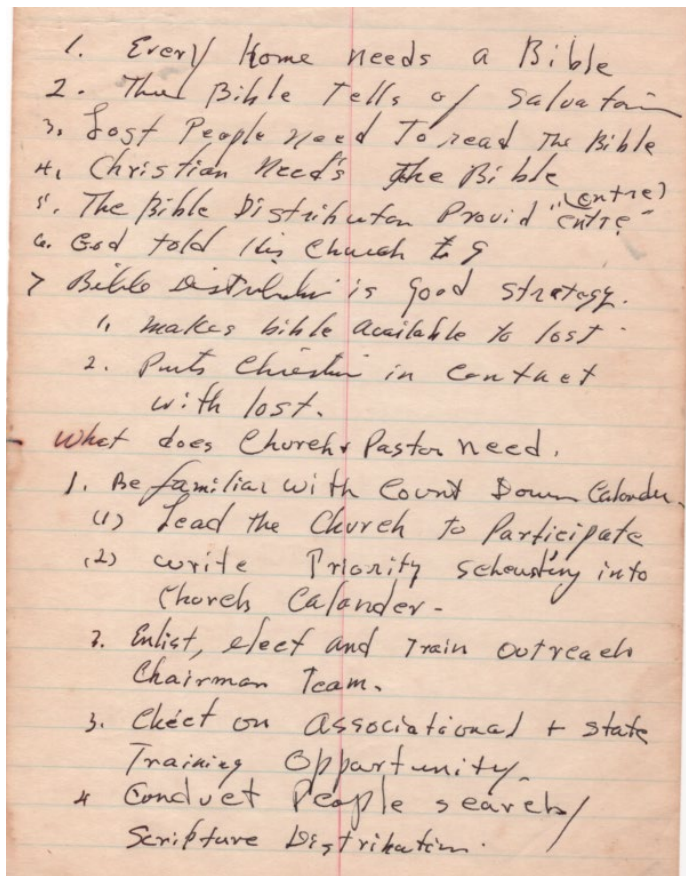 1. Every Home needs a Bible
2. The Bible Tells of Salvation
3. Lost People need To read The Bible
4. Christian Need's The Bible
5. The Bible Distribution Provid "entre" (entre)
6. God told His Church to g
7 Bible Distribution is good strategy.
1. makes bible available to lost.
2. Puts Christian in contact
with lost.
What does Church & Pastor need.
1. Be familiar with Count Down Calander.
(1) Lead the Church to Participate
(2) write Priority into
Church Calander-
2. Enlist, elect and Train outreach
Chairman Team.
3. Check on Associational + state
Training Opportunity
4 Conduct People search/
Scripture Distribution.